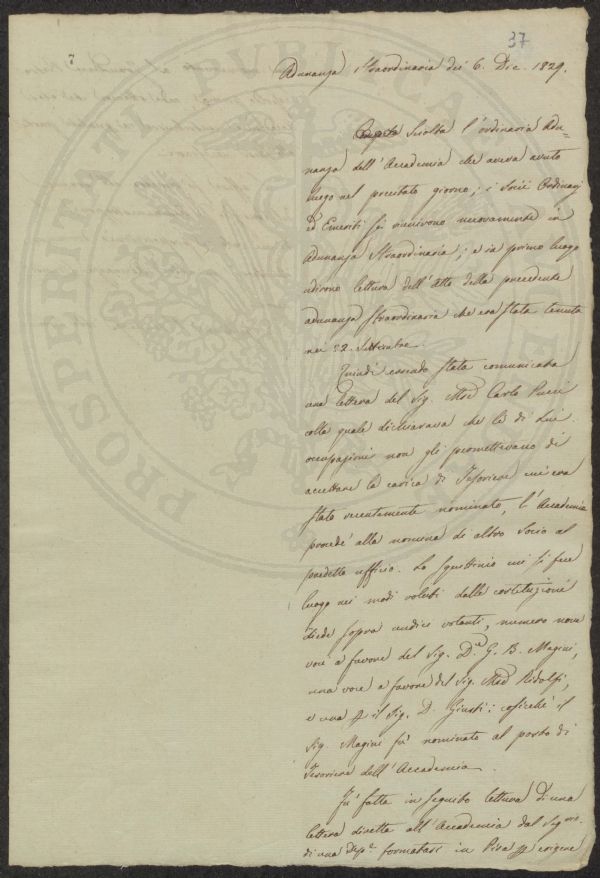 37
Adunanza Straordinaria dei 6. Dic. 1829.
Sciolta l'ordinaria Adu=
nanza dell'Accademia che aveva avuto
luogo nel precitato giorno; i Socii Ordinarj
ed Emeriti si riunirono nuovamente in
Adunanza Straordinaria; e in primo luogo
udirono lettura dell'Atto della precedente
adunanza straordinaria che era stata tenuta
nei 22. Settembre.
Quindi essendo stata comunicata
una lettera del Sig. Carlo Pucci
colla quale dichiarava che le di Lui
occupazioni non gli promettevano di
accettare la carica di Tesoriere cui era
stato recentemente nominato, l'Accademia
procedé alla nomina di altro Socio al
predetto uffizio. Lo Squittinio cui si fece
luogo nei modi voluti dalle costituzioni
diede sopra undici votanti, numero nove
voci a favore del Sig. D.e G. B. Magini,
una voce a favore del Sig. Ridolfi,
e una il Sig. D. Giusti: cosicché il
Sig. Magini fù nominato al posto di
Tesoriere dell'Accademia.
Fu' fatta in seguito lettura di una
lettera diretta all'Accademia dal
di una formatasi in Pisa erigere
PROSPERITATI PUBLICAE